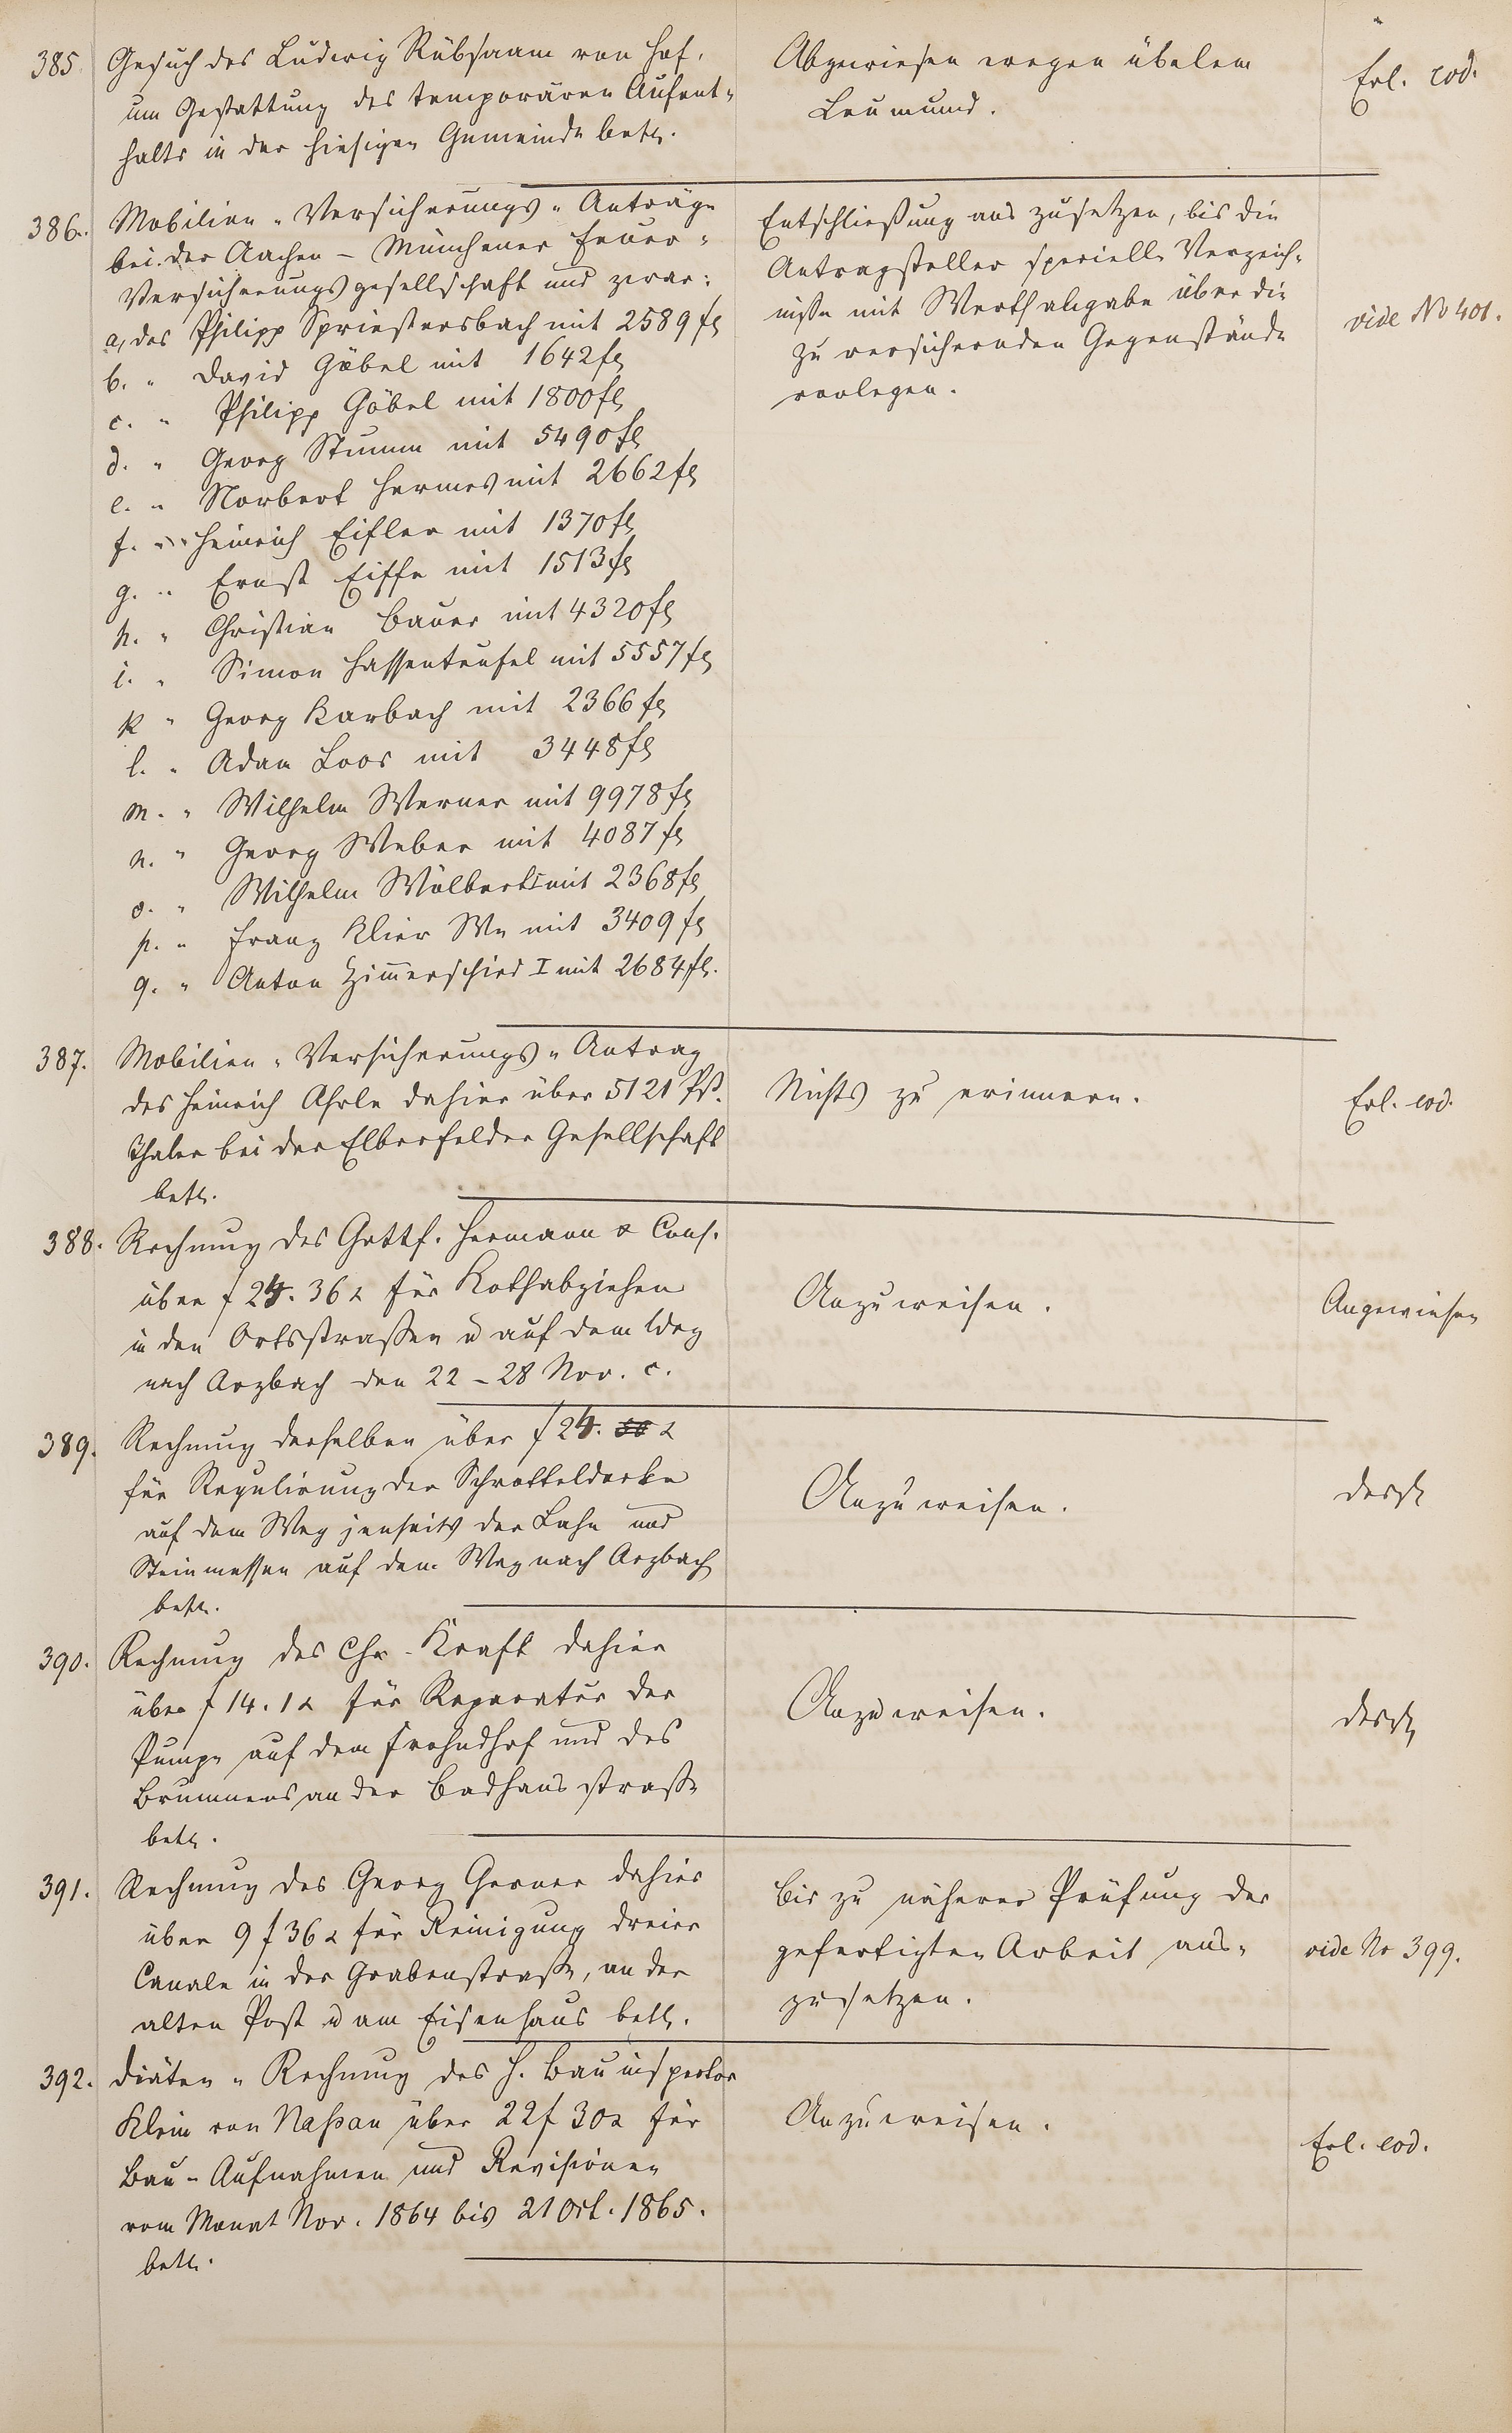 385. Gesuch des Ludwig Rübsaam von Hof,
um Gestattung des temporären Aufent-
halts in der hiesigen Gemeinde betr.
Abgewiesen wegen übelem
Leumund.
Erl. eod.
386. Mobilien-Versicherungs-Anträge
bei der Aachen-Münchener Feuer-
Versicherungsgesellschaft und zwar:
a, des Philipp Spriestersbach mit 2589 fl
b. " David Göbel mit 1642 fl
c. " Philipp Göbel mit 1800 fl
d. " Georg Stumm mit 5490 fl
e. " Norbert Hermes mit 2662 fl
f. " Heinrich Eifler mit 1370 fl
g. " Ernst Eiffe mit 1513 fl
h. " Christian Bauer mit 4320 fl
i. " Simon Hassenteufel mit 5557 fl
k " Georg Karbach mit 2366 fl
l. " Adam Loos mit 3448 fl
m. " Wilhelm Werner mit 9978 fl
n. " Georg Weber mit 4087 fl
o. " Wilhelm Wölbert mit 2368 fl
p. " Franz Klier We mit 3409 fl
q. " Anton Zimerschied I mit 2684 fl.
Entschließung aus zusetzen, bis die
Antragsteller specielle Verzeich-
niße mit Werthangabe über die
zu versichernden Gegenstände
vorlegen.
vide No 401.
387. Mobilien-Versicherungs-Antrag
des Heinrich Ahrle dahier über 5121 Pß.
Thaler bei der Elberfelder Gesellschaft
betr.
Nichts zu erinnern.
Erl. eod.
388. Rechnung des Gottf. Hermann & Cons.
über f 24. 36 x für Kothabziehen
in den Ortsstraßen u auf dem Weg
nach Arzbach den 22-28 Nov. c.
Anzuweisen.
Angewiesen
389. Rechnung derselben über f 24. x
für Regulirung der Schrotteldecke
auf dem Weg jenseits der Lahn und
Steinmessen auf dem Weg nach Arzbach
betr.
Anzuweisen.
desgl
390. Rechnung des Chr. Kraft dahier
über f 14. 1 x für Reparatur der
Pumpe auf dem Frohndhof und des
Brunnens an der Badhaus straße
betr.
Anzuweisen.
desgl
391. Rechnung des Georg Gerner dahier
über 9 f 36 x für Reinigung dreier
Canale in der Grabenstraße, an der
alten Post u am Eisenhaus betr.
Bis zu näherer Prüfung der
gefertigten Arbeit aus-
zusetzen.
vide No 399.
392. Diäten-Rechnung des H. Bauinspector
Klein von Naßau über 22 f 30 x für
Bau-Aufnahmen und Revisionen
vom Monat Nov. 1864 bis 21 Oct. 1865.
betr.
Anzuweisen.
Erl. eod.